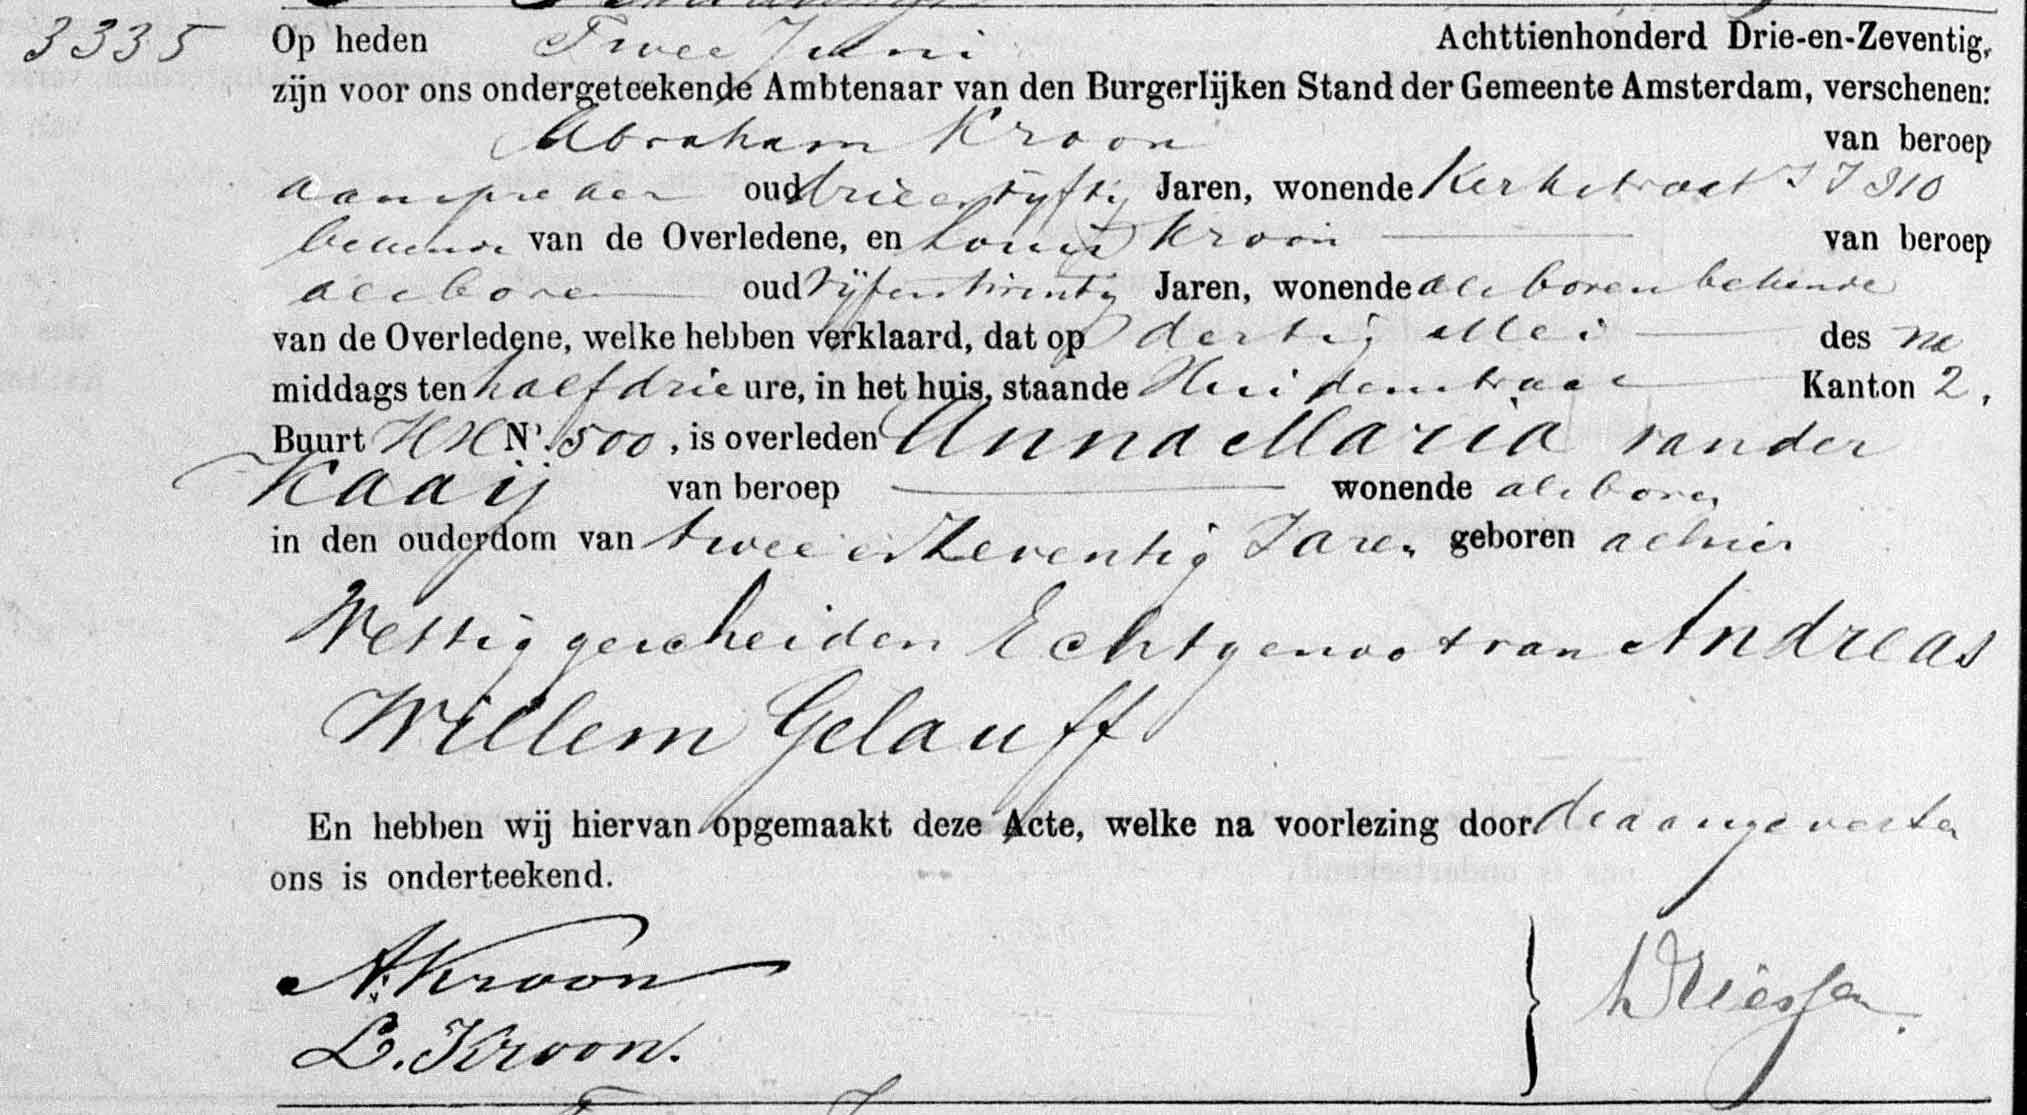 3335 Op heden Twee Juni Achttienhonderd Drie-en-Zeventig,
zijn voor ons ondergeteekende Ambtenaar van den Burgerlijken Stand der Gemeente Amsterdam, verschenen:
Abraham Kroon van beroep
aanspreker oud drieenvyftig Jaren, wonende Kerkstraat JJ 310
bekende van de Overledene, en Louis Kroon van beroep
alsboven oud vyfentwintig Jaren, wonende als boven bekende
van de Overledene, welke hebben verklaard, dat op dertig Mei des na
middags ten half drie ure, in het huis, staande Huidenstraat Kanton 2,
Buurt HH N.r 500, is overleden Anna Maria van der
Kaaij van beroep wonende alsboven
in den ouderdom van twee en Zeventig Jaren geboren alhier
Wettig gescheiden Echtgenoot van Andreas
Willem Gelauff
En hebben wij hiervan opgemaakt deze Acte, welke na voorlezing door de aangevers en
ons is onderteekend.
A. Kroon
L. Kroon.